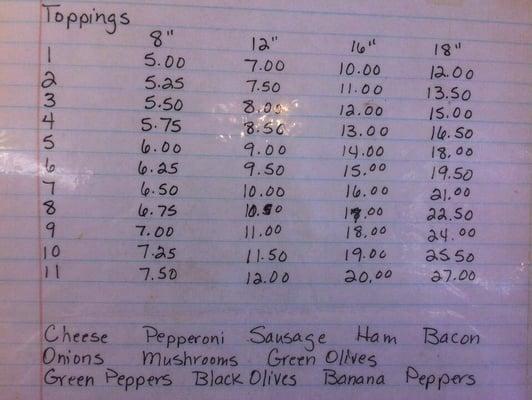 Toppings
8" 12" 16" 18"
1 5.00 7.00 10.00 12.00
2 5.25 7.50 11.00 13.50
3 5.50 8.00 12.00 15.00
4 5.75 8.50 13.00 16.50
5 6.00 9.00 14.00 18.00
6 6.25 9.50 15.00 19.50
7 6.50 10.00 16.00 21.00
8 6.75 10.50 17.00 22.50
9 7.00 11.00 18.00 24.00
10 7.25 11.50 19.00 25.50
11 7.50 12.00 20.00 27.00
Cheese Pepperoni Sausage Ham Bacon
Onions Mushrooms Green Olives
Green Peppers Black Olives Banana Peppers